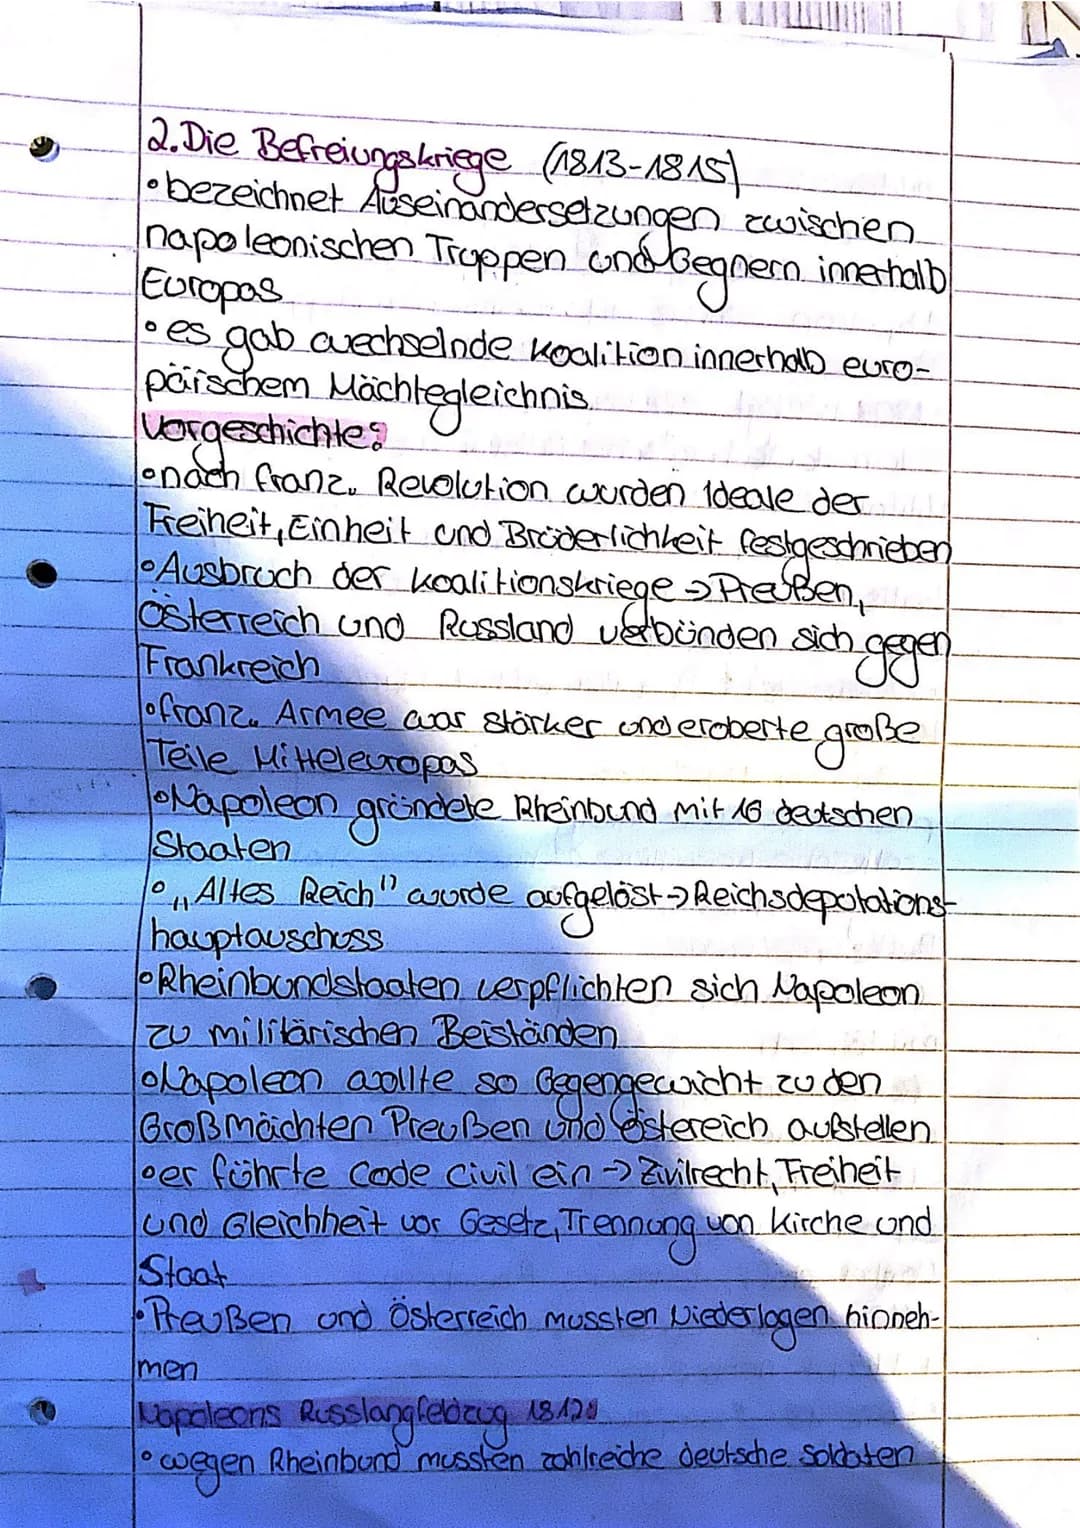 2. Die Befreiungskriege (1813-1815)
• bezeichnet Auseinandersetzungen zwischen
napoleonischen Truppen und Gegnern innerhalb
Europas
• es gab wechselnde Koalition innerhalb euro-
päischem Mächtegleichnis
Vorgeschichte:
• nach franz. Revolution wurden Ideale der
Freiheit, Einheit und Brüderlichkeit festgeschrieben
• Ausbruch der Koalitionskriege → Preußen,
Österreich und Russland verbünden sich gegen
Frankreich
• franz. Armee war stärker und eroberte große
Teile Mitteleuropas
• Napoleon gründete Rheinbund mit 16 deutschen
Staaten
• „Altes Reich" wurde aufgelöst → Reichsdeputations-
hauptauschuss
• Rheinbundstaaten verpflichten sich Napoleon
zu militärischen Beiständen
• Napoleon wollte so Gegengewicht zu den
Großmächten Preußen und Östereich aufstellen
• er führte Code Civil ein → Zivilrecht, Freiheit
und Gleichheit vor Gesetz, Trennung von Kirche und
Staat
• Preußen und Österreich mussten Niederlagen hinneh-
men
Napoleons Russlangfeldzug 1812:
• wegen Rheinbund mussten zahlreiche deutsche Soldaten